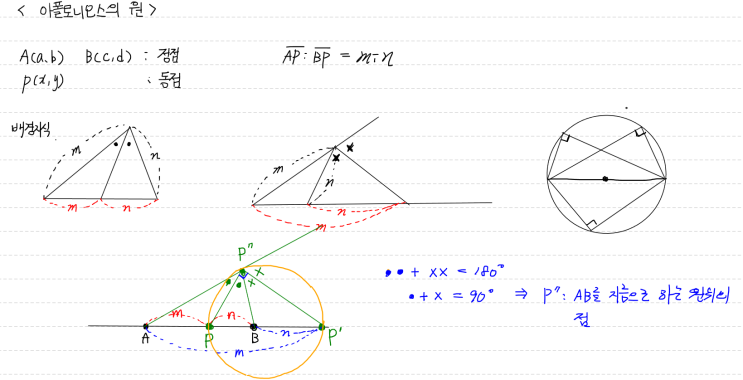 < 아폴로니오스의 원 >
A(a,b) B(c,d) : 정점
P(x,y) : 동점
AP : BP = m : n
배경지식
m n
m n
m
n
n
m
P"
x
x
m n
A P B n P'
m
●● + xx = 180°
● + x = 90° ⇒ P" : AB를 지름으로 하는 원위의
점